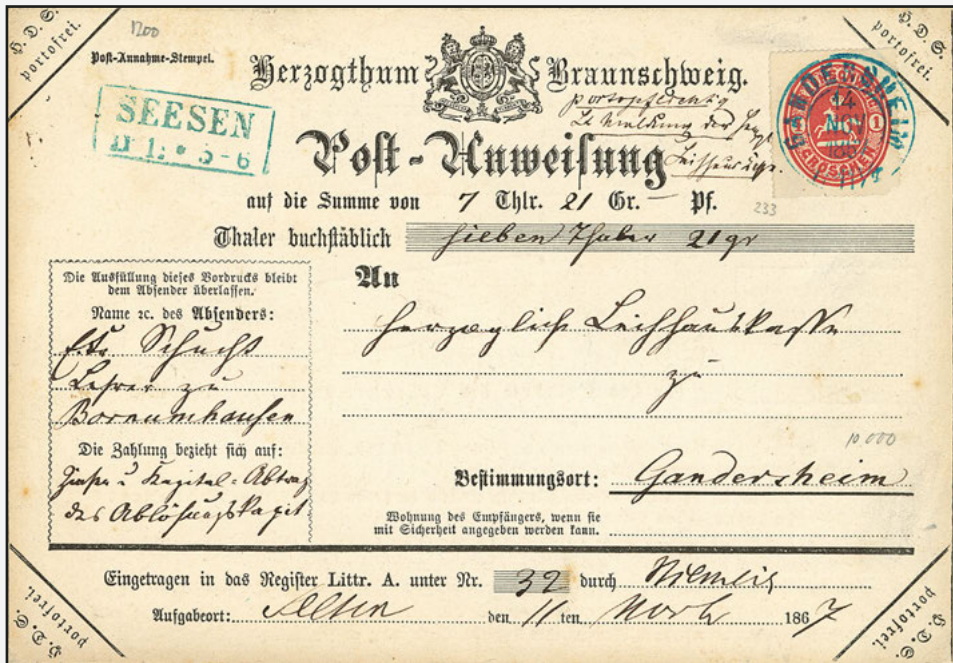 H. D. S.
portofrei.
1200
Post-Annahme-Stempel.
Herzogthum Braunschweig.
H. D. S.
portofrei.
SEESEN
11 5-6
portopflichtig
GANDERSHEIM
14
NOV
1
GROSCHEN
Post-Anweisung
auf die Summe von 7 Thlr. 21 Gr. — Pf.
233
Thaler buchstäblich sieben Thaler 21 gr
Die Ausfüllung dieses Vordrucks bleibt
dem Absender überlassen.
Name ꝛc. des Absenders:
Schucht
Lehrer zu
Bornumhausen
Die Zahlung bezieht sich auf:
Zinsen u Kapital-Abtrag
des Ablösungskapit
An
Herzogliche Leihhauskasse
zu
10 000
Bestimmungsort: Gandersheim
Wohnung des Empfängers, wenn sie
mit Sicherheit angegeben werden kann.
Eingetragen in das Register Littr. A. unter Nr. 32 durch
Aufgabeort: Seesen den 11 ten Novb 1867
H. D. S.
portofrei.
H. D. S.
portofrei.